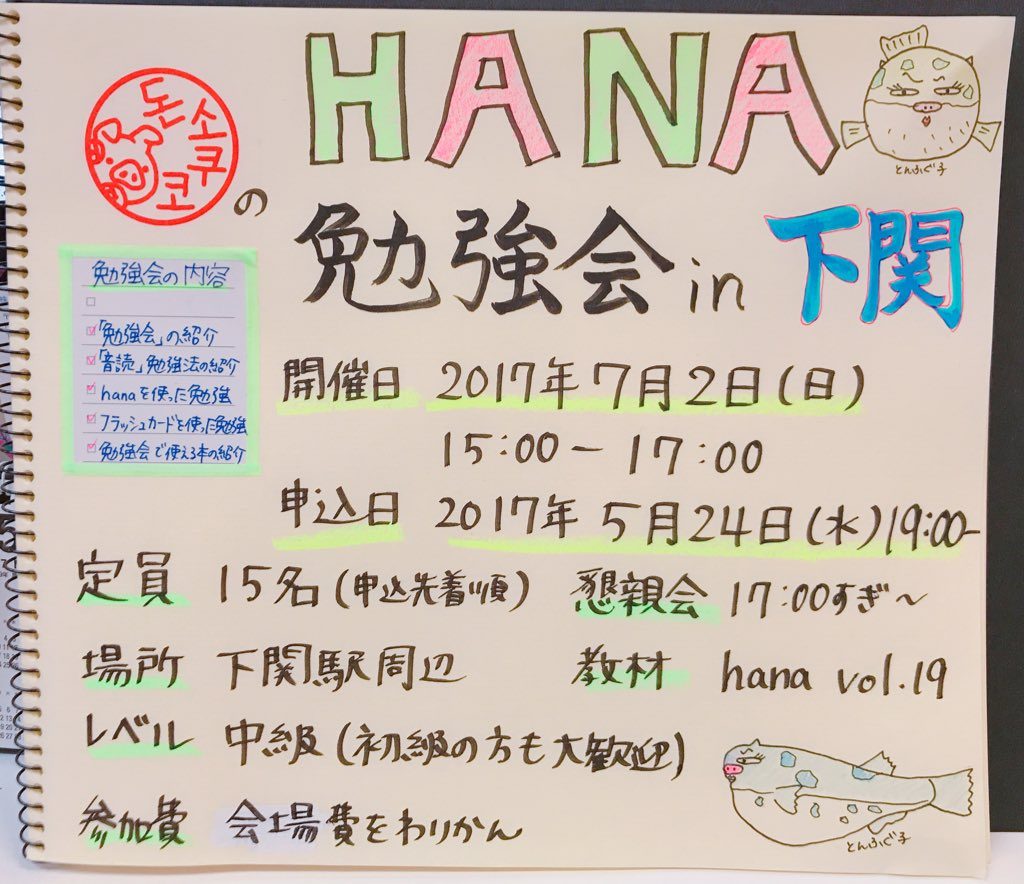 HANA
돈소쿠코
の
とんふぐ子
勉強会 in 下関
勉強会の内容
「勉強会」の紹介
「音読」勉強法の紹介
hanaを使った勉強
フラッシュカードを使った勉強
勉強会で使える本の紹介
開催日 2017年7月2日(日)
15:00- 17:00
申込日 2017年 5月24日(水)19:00-
定員 15名(申込先着順) 懇親会 17:00すぎ〜
場所 下関駅周辺 教材 hana vol.19
レベル 中級(初級の方も大歓迎)
参加費 会場費をわりかん
とんふぐ子